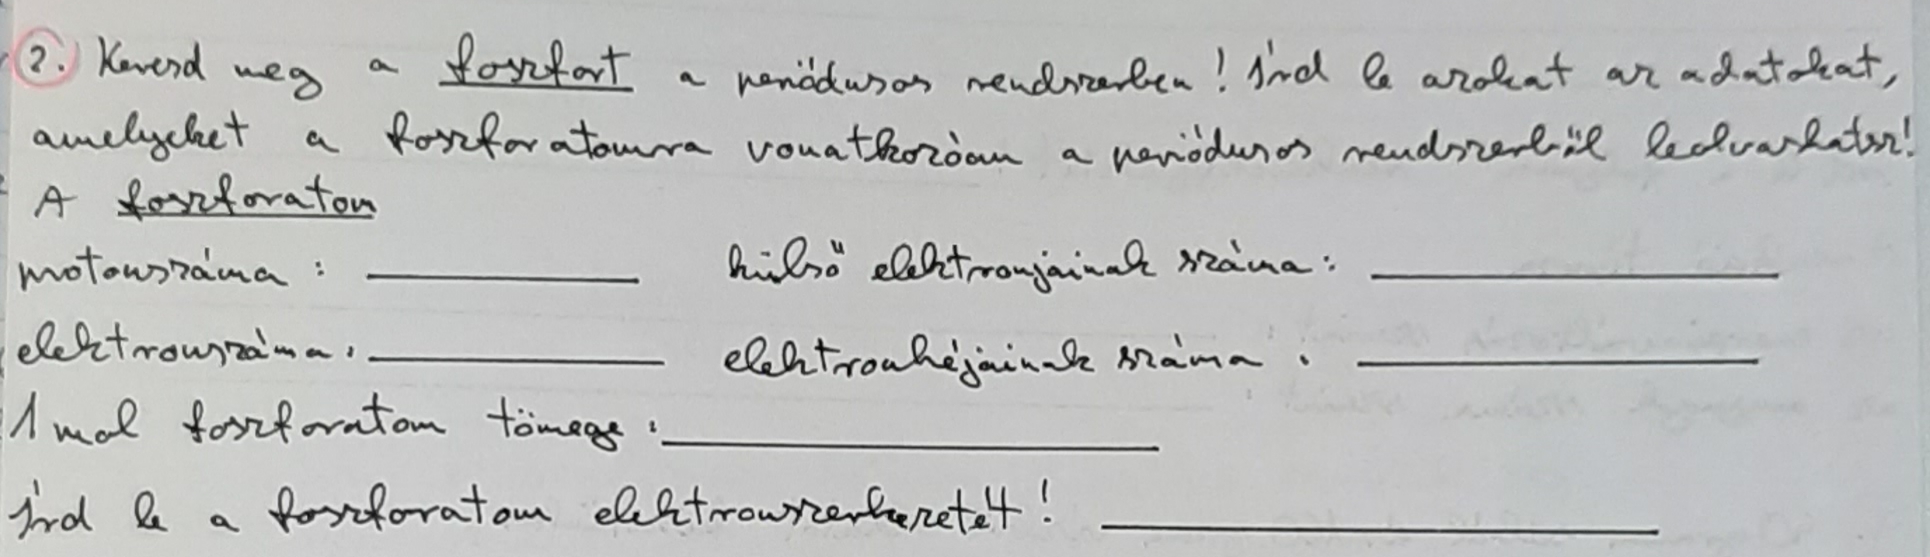 2. Keresd meg a foszfort a periódusos rendszerben! Írd le azokat az adatokat,
amelyeket a foszforatomra vonatkozóan a periódusos rendszerből leolvashatsz!
A foszforatom
protonszáma: külső elektronjainak száma:
elektronszáma: elektronhéjainak száma:
1 mol foszforatom tömege:
Írd le a foszforatom elektronszerkezetét!